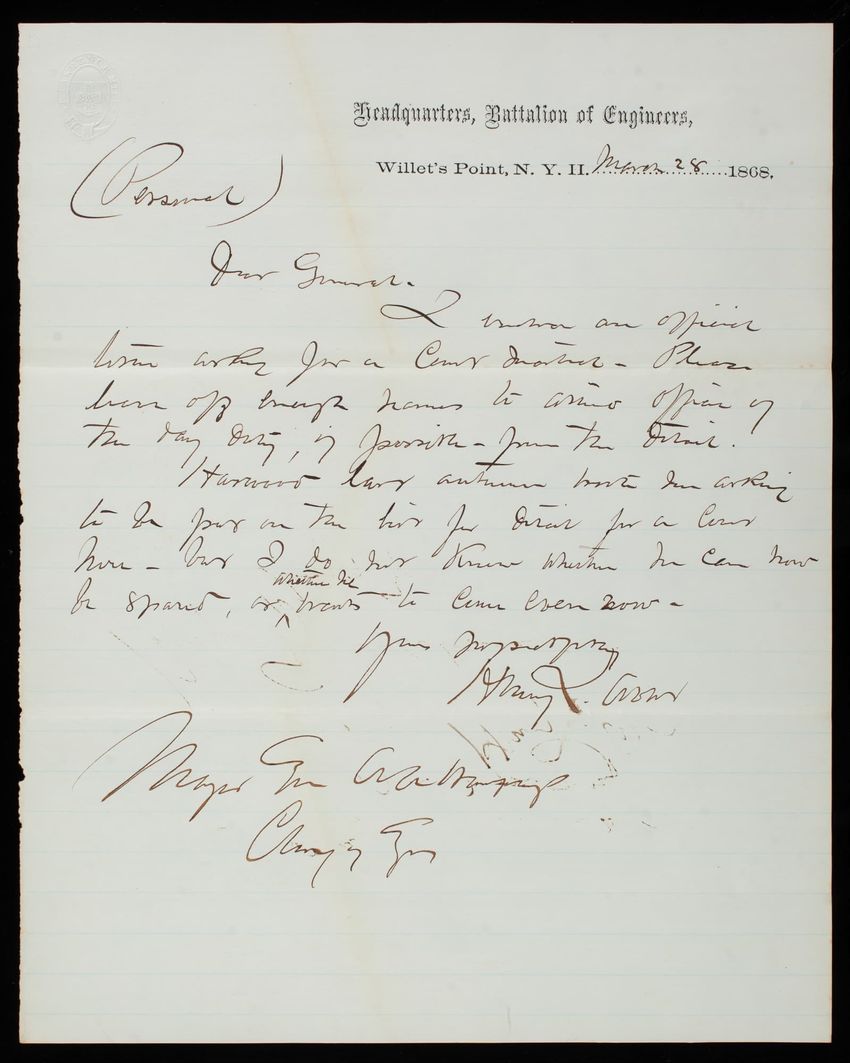 Headquarters, Battalion of Engineers,
Willet's Point, N. Y. H. March 28 1868.
(Personal)
Dear General.
I enclose an official
letter asking for a Court Martial - Please
leave off enough names to admit officer of
the day duty, if possible - from the detail.
Harwood last autumn wrote me asking
to be put on the list for detail for a Court
here - but I do not know whether he can now
whether he
be spared, or wants to come even now -
Yours respectfully
Henry L. Abbot
Major Gen A A Humphreys
Chief of Engrs